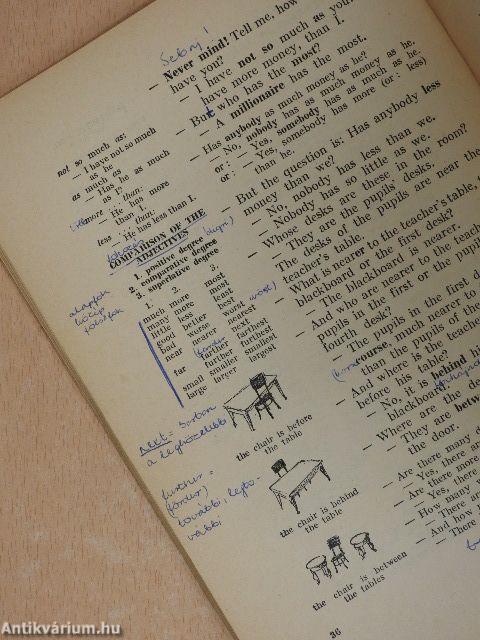 Sebaj!
— Never mind! Tell me, how
have you?
— I have not so much as you.
have more money, than I.
— But who has the most?
— A millionaire has the most.
— Has anybody as much money as he?
— No, nobody has as much as he.
or: — Yes, somebody has as much as he.
or: — Yes, somebody has more (or: less)
than he.
— But the question is: Has anybody less
money than we?
— No, nobody has less than we.
— Nobody has so little as we.
— Whose desks are these in the room?
— They are the pupils' desks.
The desks of the pupils are near the
teacher's table.
— What is nearer to the teacher's table, t
blackboard or the first desk?
— The blackboard is nearer.
— And who are nearer to the teach
pupils in the first or the pupil
fourth desk?
— The pupils in the first d
course, much nearer to
than the pupils of the
— And where is the teache
before his table?
— No, it is behind hi
blackboard.
— Where are the de
— They are betw
the door.
— Are there many d
— Yes, there
— Are there more
— Yes, there
— How many
— And how
— There
not so much as:
— I have not so much
as he.
as much as
— Has he as much
as I?
more ... than:
— He has more
than I.
less ... than:
— He has less than I.
COMPARISON OF THE
ADJECTIVES
1. positive degree
2. comparative degree
3. superlative degree
alapfok
közép
felsőfok
1. 2. 3.
much more most
many more most
little less least
good better best
bad worse worst
near nearer nearest
next
far farther farthest
further furthest
small smaller smallest
large larger largest
next: sorban
a legközelebbi
the chair is before
the table
further =
további, legto-
vábbi
the chair is behind
the table
the chair is between
the tables
36
Antikvárium.hu